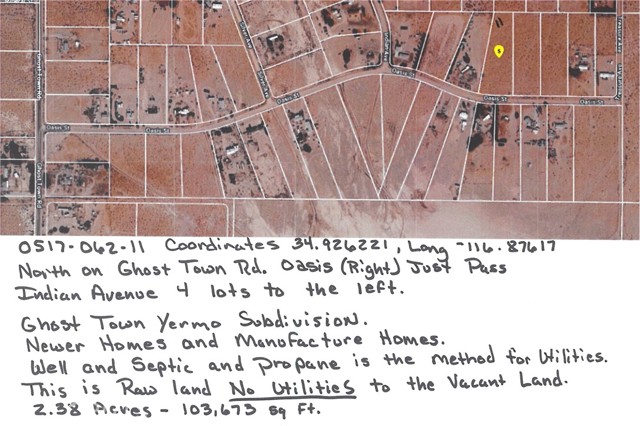 Oasis St
Oasis St
Oasis St
Oasis St
Oasis St
Oasis St
Ghost Town Rd
0517-062-11 Coordinates 34.926221, Long -116.87617
North on Ghost Town Rd. Oasis (Right) Just Pass
Indian Avenue 4 lots to the left.
Ghost Town Yermo Subdivision.
Newer Homes and Manofacture Homes.
Well and Septic and Propane is the method for Utilities.
This is Raw land No Utilities to the Vacant Land.
2.38 Acres - 103,673 sq Ft.